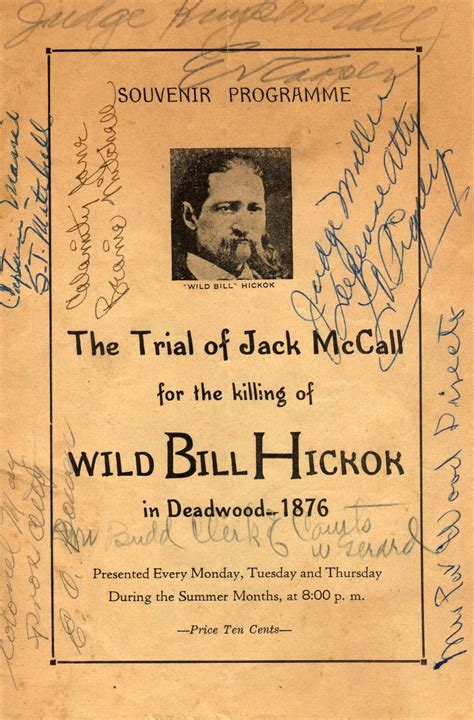 Judge
SOUVENIR PROGRAMME
Captain Massie
S.T. Mitchell
Calamity Jane
Mitchell
Judge Miller
Defense Atty
"WILD BILL" HICKOK
The Trial of Jack McCall
for the killing of
WILD BILL HICKOK
in Deadwood--1876
Mr Budd Clerk of Courts
W Gerard
Presented Every Monday, Tuesday and Thursday
During the Summer Months, at 8:00 p. m.
—Price Ten Cents—
Colonel May
Pros Atty
Wood Directs